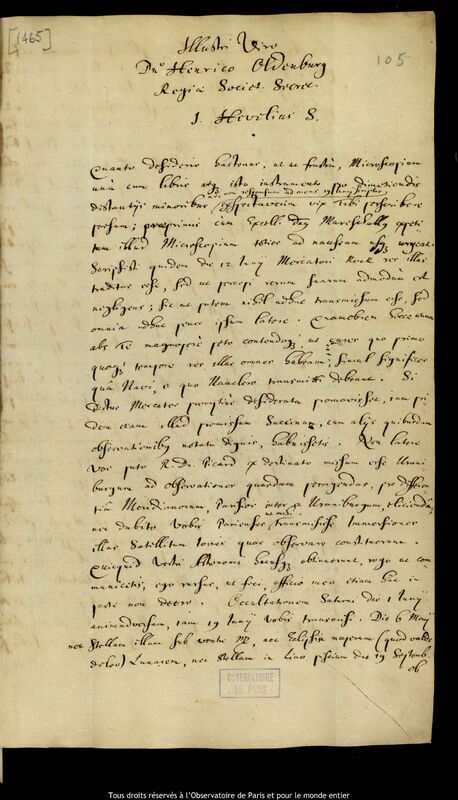 [1465]
105
Illustri Viro
Dno Henrico Oldenburg
Regiæ Societ. Secret.
J. Hevelius S.
Quanto desiderio hactenus, ut ut frustrà, Microscopium
unà cum libris atq; isto instrumento pro dimetiendis
nec non responsum ad meas
distantijs minoribus expectaverim vix Tibi perscribere
possum; cum Excell. Dn. expeti
tum illud Microscopium toties ad nauseam usq; urgeat.
Scripsisti quidem die 12 Iunij Mercatori Kock res illas
traditas esse, sed ut percepi rerum suarum admodum est
negligens; sic ut putem nihil adhuc transmissum esse, sed
omnia adhuc penes ipsum latere. Quamobrem hocce unum
abs Te magnopere peto contendoq; ut cures quo primo
quoq; tempore res illas omnes habeam; simul significes
quâ Navi, a quo Nauclero transmitti debeant. Si
dictus Mercator promptius desiderata promovisset, iam pri
dem etiam illud promissum Succinum, cum alijs quibusdam
observationibus notatu dignis, habuissetis. Non latere
Vos puto R. Dn. Picard ex destinato missum esse Urani
burgum ad observationes quasdam peragendas, pro differen
tiâ Meridianorum, Parisios inter et Uraniburgum, elicienda,
ut mihi
nec dubito Vobis Parienses transmisisse Immersiones
illas Satellitum Iovis quas observare constituerunt.
Quicquid Vestri Astronomi hacusq; obtinuerunt, rogo ut com
municetis; ego rursus, ut feci, officio meo etiam hac in
parte non deero. Occultationem Saturni die 1 Iunij
animadversam, iam 19 Iunij vobis transmisi. Die 6 Maij
nec Stellam illam sub ventre ♍, nec Eclipsin nuperam (quod valdè
doleo) Lunarem, nec Stellam in Lino piscium die 19 Septemb.
ob
OBSERVATOIRE
DE PARIS
Tous droits réservés à l'Observatoire de Paris et pour le monde entier